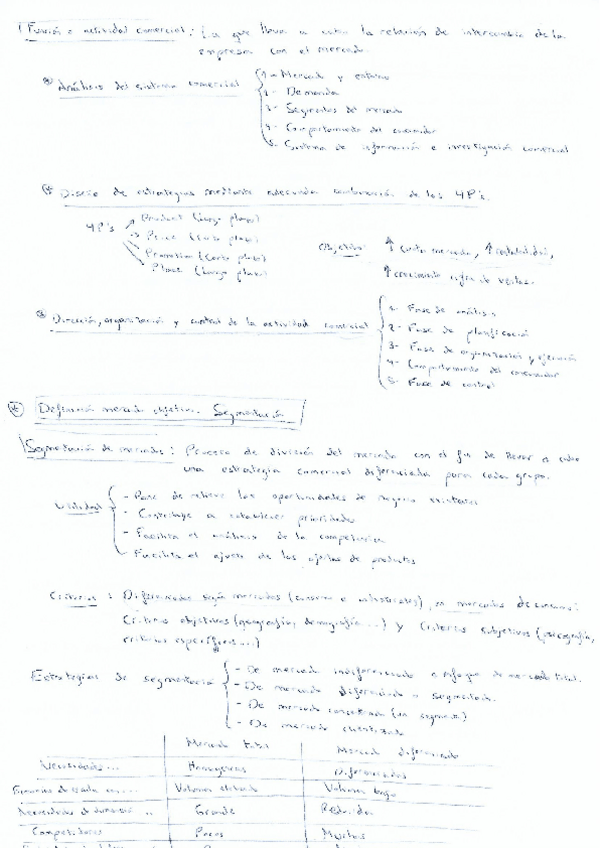 Función o actividad comercial: La que lleva a cabo la relación de intercambio de la
empresa con el mercado.
Análisis del sistema comercial
1- Mercado y entorno
2- Demanda
3- Segmentos del mercado
4- Comportamiento del consumidor
5- Sistema de información e investigación comercial
Diseño de estrategias mediante adecuada combinación de las 4P's.
4P's
Product (largo plazo)
Price (corto plazo)
Promotion (corto plazo)
Place (largo plazo)
Objetivo: ↑ cuota mercado, ↑ rentabilidad,
↑ crecimiento cifra de ventas.
Dirección, organización y control de la actividad comercial
1- Fase de análisis
2- Fase de planificación
3- Fase de organización y ejecución
4- Comportamiento del consumidor
5- Fase de control
Definición mercado objetivo. Segmentación
Segmentación de mercados: Proceso de división del mercado con el fin de llevar a cabo
una estrategia comercial diferenciada para cada grupo.
Utilidad
- Pone de relieve las oportunidades de negocio existentes
- Contribuye a establecer prioridades
- Facilita el análisis de la competencia
- Facilita el ajuste de las de productos
Criterios: Diferenciados según mercados (consumo e industriales), en mercados de consumo:
Criterios objetivos (geografía, demografía...) y Criterios subjetivos (psicografía,
criterios específicos...)
Estrategias de segmentación
- De mercado indiferenciado o enfoque de mercado total.
- De mercado diferenciado o segmentado.
- De mercado concentrado (un segmento)
- De mercado
Mercado total Mercado diferenciado
Necesidades... Homogéneas Diferenciadas
Volumen elevado Volumen bajo
Grande Reducido
Competidores Pocos Muchos